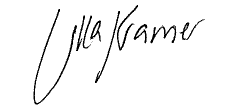 Ulla Kramer